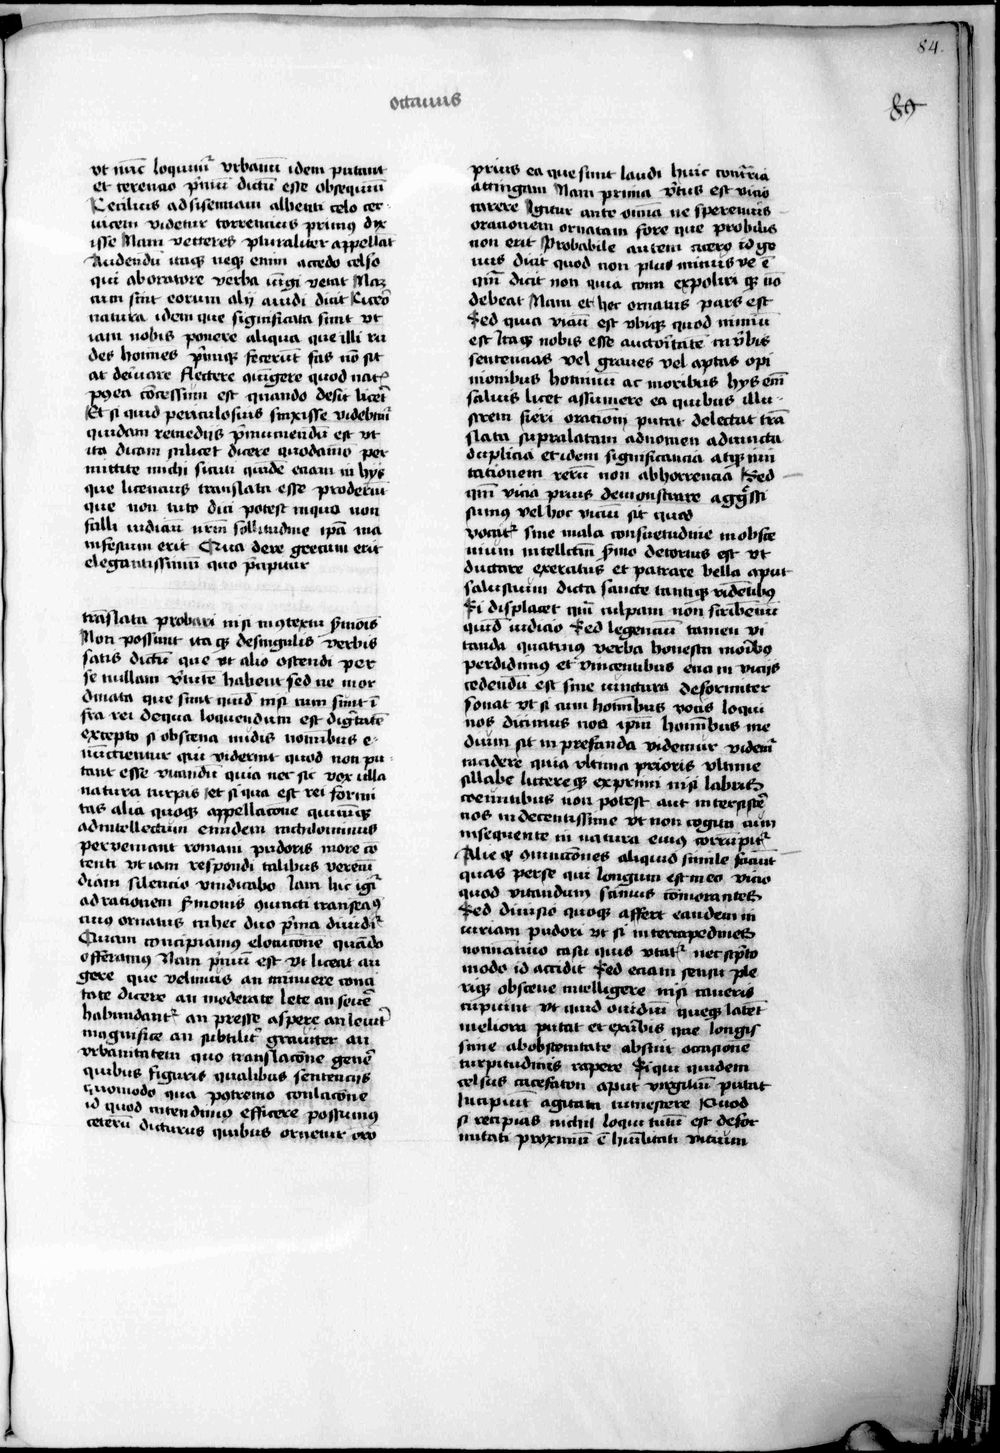 84.
octauus
89
vt nūc loquimur vrbanū idem putant
et terentio p̄mū dictū esse obsequiū
Cecilius ad sisennam albenti celo cer-
uicem videtur torrencius primus dix
isse Nam vetteres pluraliter appellāt
Audendū itaqȝ neqȝ enim accedo celso
qui ab oratore verba
cum sint eorum alij dicit Cicero
natura idem que significata sunt vt
iam nobis ponere aliqua que illi ru
des homines p̄miqȝ fecerūt fas nō sit
at deriuare flectere cōiūgere quod nat
postea cōcessum est quando desiit licere
Et si quid periculosius finxisse videbimur
quibusdam remedijs p̄muniendū est vt
ita dicam si licet dicere quodamō per
mittite michi sicuti quidē eciam in hijs
que licencius translata esse proderit
que non tuto dici potest inquo non
falli iudiciū nrm̄ sollicitudine ipā ma
nifestum erit Qua de re grecum erit
elegantissimū quo p̄cipitur
translata probari nisi in cōtextu s̄mōis
Non possunt itaqȝ de singulis verbis
satis dictū que vt alio ostendi per
se nullam v̄tute habent sed ne inor
dinata que sunt quid nisi cum sunt ī
fra rei de qua loquendum est dignitatē
excepto si obscena nudis nominibus e-
nūctientur qui viderint quod non pu-
tant esse vitandū quia nec sit vox vlla
natura turpis et si qua est rei formi
tas alia quoqȝ appellacōne quicūqȝ
ad intellectum eundem nichilominus
perveniant romani pudoris more cō
tenti vt iam respondi talibus verecū
diam silencio vindicabo Iam hic igr̄
ad rationem s̄monis cōiuncti transeam9
cui9 ornatus in hec duo p̄ma diuidit᷑
Quam concipiamus elocucōne quādo
offeramus Nam p̄mū est vt liceat au
gere que velimus an minuere conci
tate dicere an moderate lete an seuē
habundant᷑ an presse aspere an leuit᷑
magnifice an subtilit᷑ grauiter an
vrbanitatem quo translacōne genē
quibus figuris qualibus sentencijs
quomodo qua potremo conlacōne
id quod intendimus efficere possumus
ceterū dicturus quibus ornetur oro
prius ea que sunt laudi huic contraria
attingam Nam prima v̄tus est vicio
carere Igitur ante omnia ne speremus
orationem ornatam fore que probilis
non erit Probabile autem cicero id ge
nus dicit quod non plus minus ve ē
qm̄ dicit non quia comi expoliri qȝ nō
debeat Nam et hec ornatus pars est
Sed quia viciū est vbiqȝ quod nimiū
est Itaqȝ nobis esse auctoritatē in v̄bis
sentencias vel graues vel aptas opi
nionibus hominū ac moribus hijs em̄
saluis licet assumere ea quibus illu-
strem fieri orationem putat delectat trā
slata supralatam ad nomen adiuncta
duplicia et idem significancia atqȝ imi
tationem rerū non abhorrencia Sed
qm̄ vicia prius demonstrare aggressi
sumus vel hoc vicium sit quod
vocat᷑ sine mala consuetudine in obsce
nium intellectū s̄mo detortus est vt
ductare exercitus et patrare bella aput
salustium dicta sancte antiqȝ ridētibus
Si displacet qm̄ culpam non scribentiū
quid iudicio Sed legenciū tamen vi
tanda quatinus verba honesta moribus
perdidimus et vincentibus eciam viciis
cedendū est sine iunctura deformiter
sonat vt si cum hominibus notis loqui
nos dicimus nota ipm̄ hominibus me
dium sit in prefanda videmur videm̄
incidere quia vltima prioris vltime
sillabe littereqȝ exprimi nisi labris
coeuntibus non potest aut intersistē
nos indecentissime vt non cogitū cum
insequente in natura eius corrumpit᷑
Alie qȝ cōiunctiones aliquid simile faciūt
quas per se qui longum est in eo vicio
quod vitandum simus commorantes
Sed diuisio quoqȝ affert eandem in
iuriam pudori vt si intercapedines
nominatiuo casu quis vtat᷑ nec scripto
modo id accidit Sed eciam sensu ple
riqȝ obscene intelligere nisi caueris
cupiunt vt quid ouidiū queqȝ latēt
meliora putat et ex v̄bis que longis
sime ab obscenitate absunt occasionē
turpitudinis rapere Si qui quidem
celsus cacefaton aput virgiliū putat
Incipiunt agitata tumescere Quod
si recipias nichil loqui tutū est defor
mitati proximū ē humilitati vicium